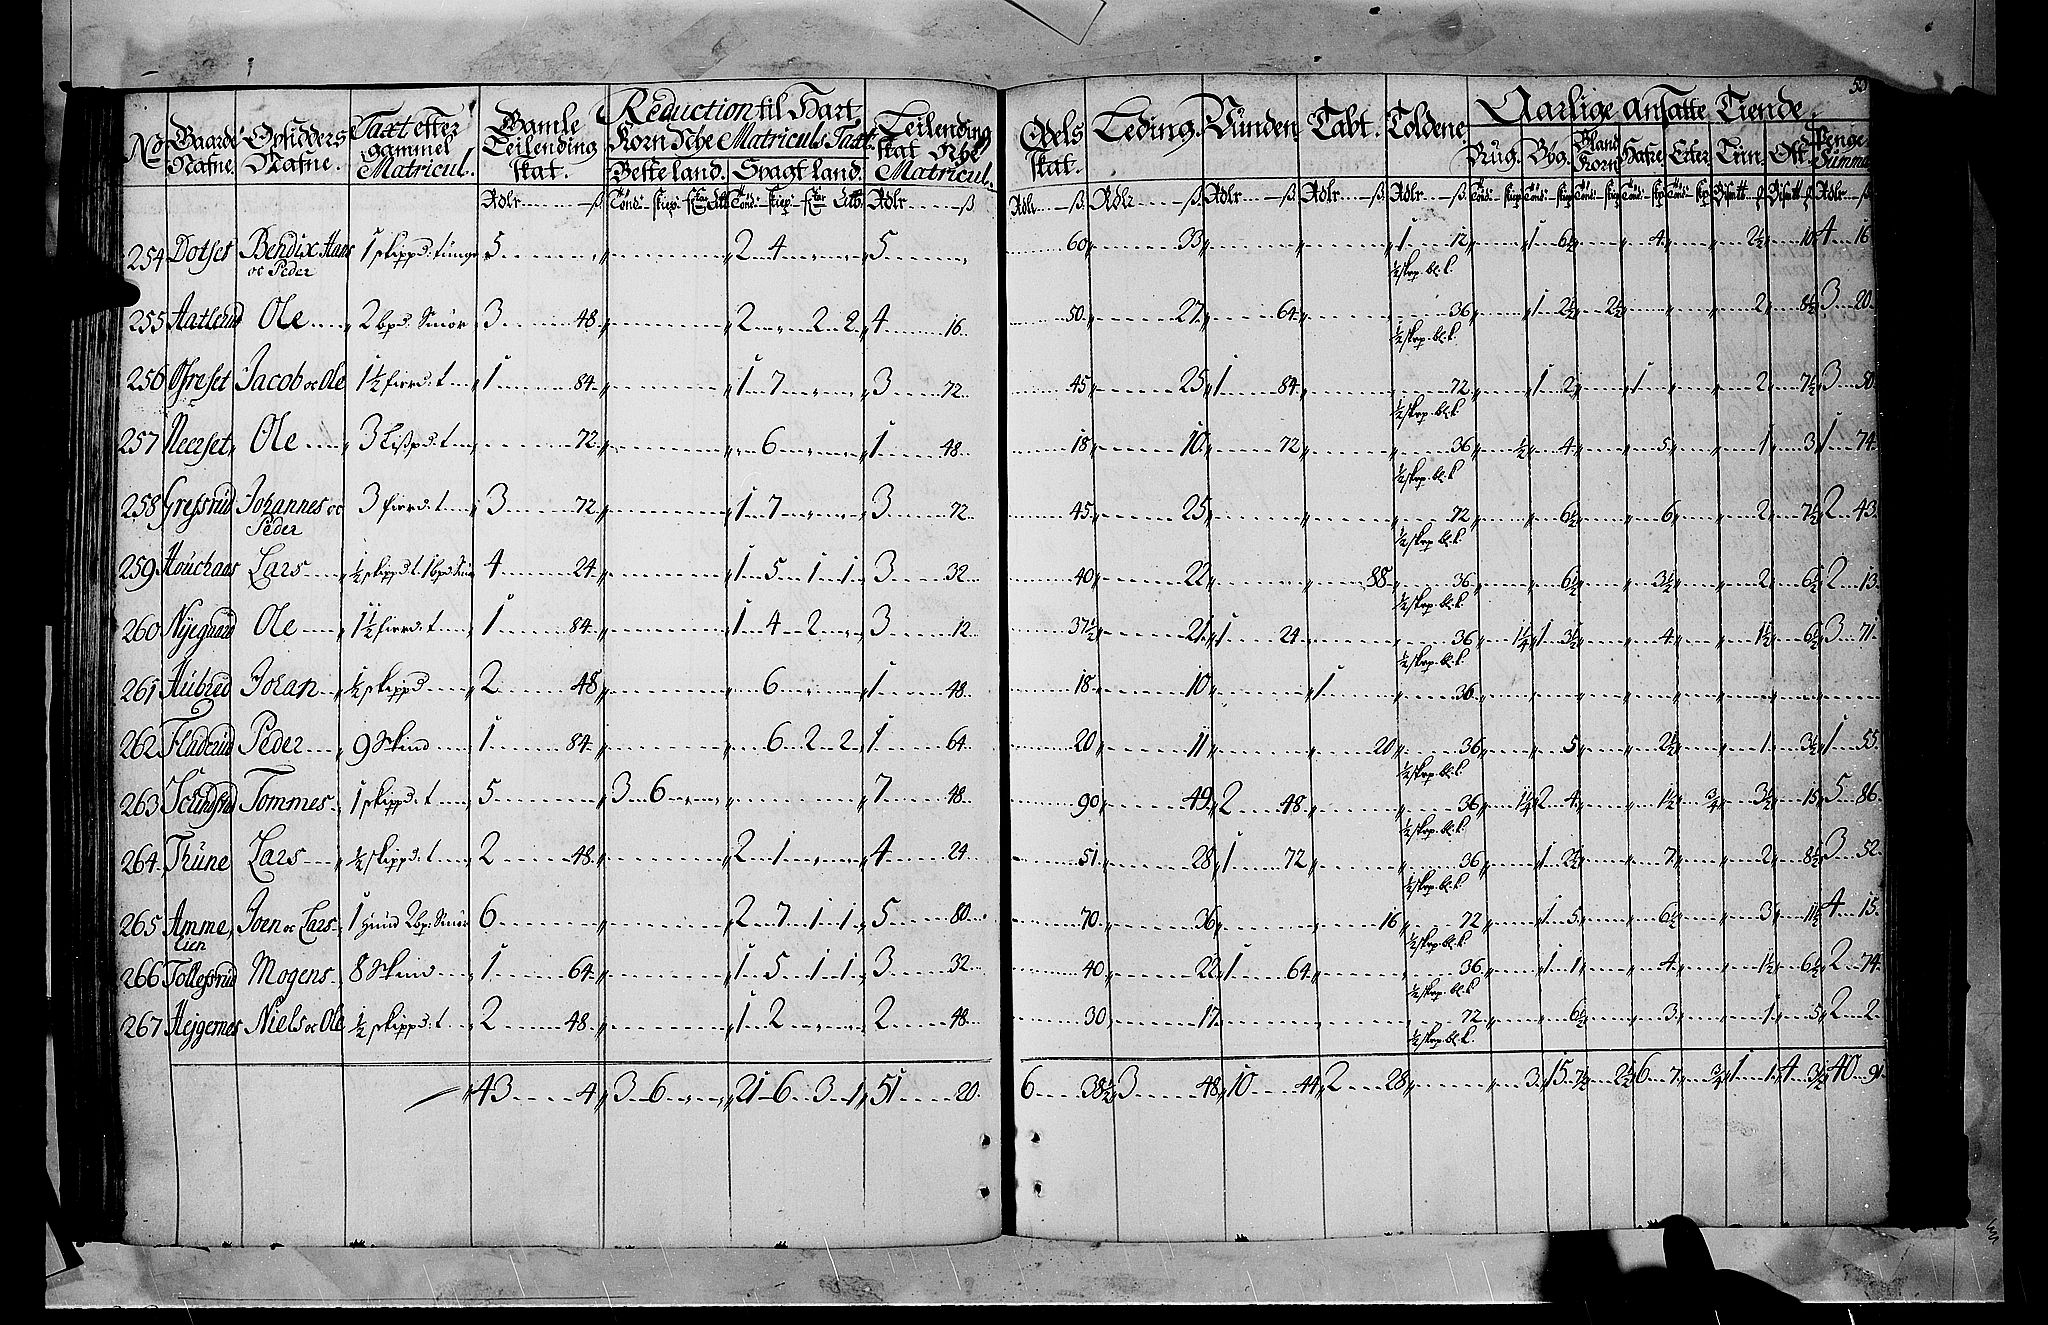 50
No Gaarde Nafne. Opsidders Nafne. Taxt efter gammel Matricul. Gamle Leilending skat. Reduction til Hart Korn Nÿe Matriculs Taxt. Leilending skat Nÿe Matricul.
Beste land. Svagt land.
Odels skat. Leding. Vünden Tabt. Toldene Aarlige Ansatte Tiende.
Rüg. Bÿg. Bland Korn Hafre Erter Penge Summa
254 Dotset Behdix Hans oc Peder 1 skippd: tunge 5 2 4 5 60 33 1 12 1 6½ 4 2½ 10 4 16
½ skrp. bl. k.
255 Ole 2 bpd. Smör 3 48 2 2 2 4 16 50 27 64 36 1 2½ 2½ 2 8½ 3 20
½ skrp. bl. k.
256 Ofreset Jacob oc Ole 1½ fierd: t 1 84 1 7 3 72 45 25 1 84 72 1 2 1 2 7½ 3 50
½ skrp. bl. k
257 Neerset Ole 3 Lispd: t 72 6 1 48 18 10 72 36 ½ 4 5 1 3 1 74
½ skrp. bl. k
258 Grefsrud Johannes oc Peder 3 fierd: t 3 72 1 7 3 72 45 25 72 6½ 6 2 7½ 2 43
½ skrp bl. k.
259 Lars ½ skippd t. 1 bpd Smör 4 24 1 5 1 1 3 32 40 22 88 36 6½ 3½ 2 6½ 2 13
½ skrp. bl. k.
260 Nÿegaard Ole 1½ fierd: t 1 84 1 4 2 3 12 37½ 21 1 24 36 1¼ 1 3½ 4 1½ 6½ 3 71
½ skrp. bl. k.
261 Johan ½ skippd 2 48 6 1 48 18 10 1 36
262 Fladerud Peder 9 Skind 1 84 6 2 2 1 64 20 11 20 36 5 2½ 1 3½ 1 55
½ skrp. bl. k.
263 Tommes 1 skippd: t 5 3 6 7 48 90 49 2 48 36 1¼ 2 4 1½ ¾ 3½ 15 5 86
½ skrp. bl. k.
264 Thüne Lars ½ skippd: t 2 48 2 1 4 24 51 28 1 72 36 1 2½ 7 2 8½ 3 52
½ skrp. bl. k
265 Amme, lien Joen oc Lars 1 Hund 2 bp: Smör 6 2 7 1 1 5 80 70 36 16 72 1 5 6½ 3 11½ 4 15
½ skrp. bl. k
266 Tollefsrud Mogens 8 Skind 1 64 1 5 1 1 3 32 40 22 1 64 36 1 1 4 1½ 6½ 2 74
½ skrp. bl. k
267 Hejgernes Niels oc Ole ½ skippd: t 2 48 1 2 2 48 30 17 72 6½ 3 1 5 2 2
½ skrp. bl. k.
43 4 3 6 21 6 3 1 51 20 6 38½ 3 48 10 44 2 28 3 15 7½ 2½ 6 7 ¾ 1 1 4 3½ 40 91